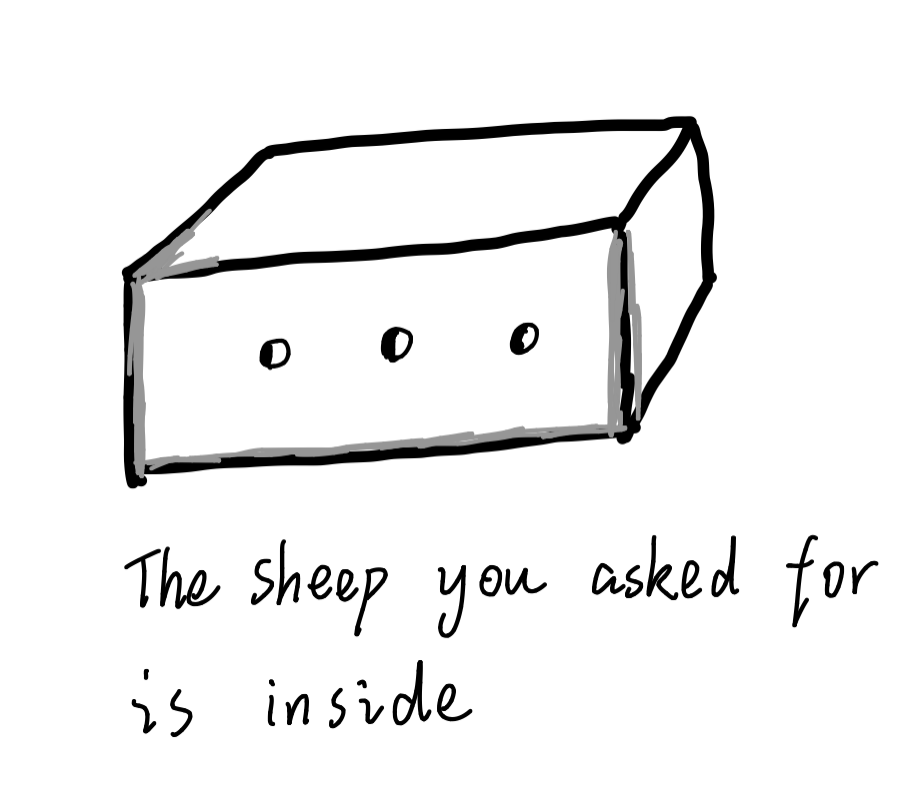 The sheep you asked for
is inside